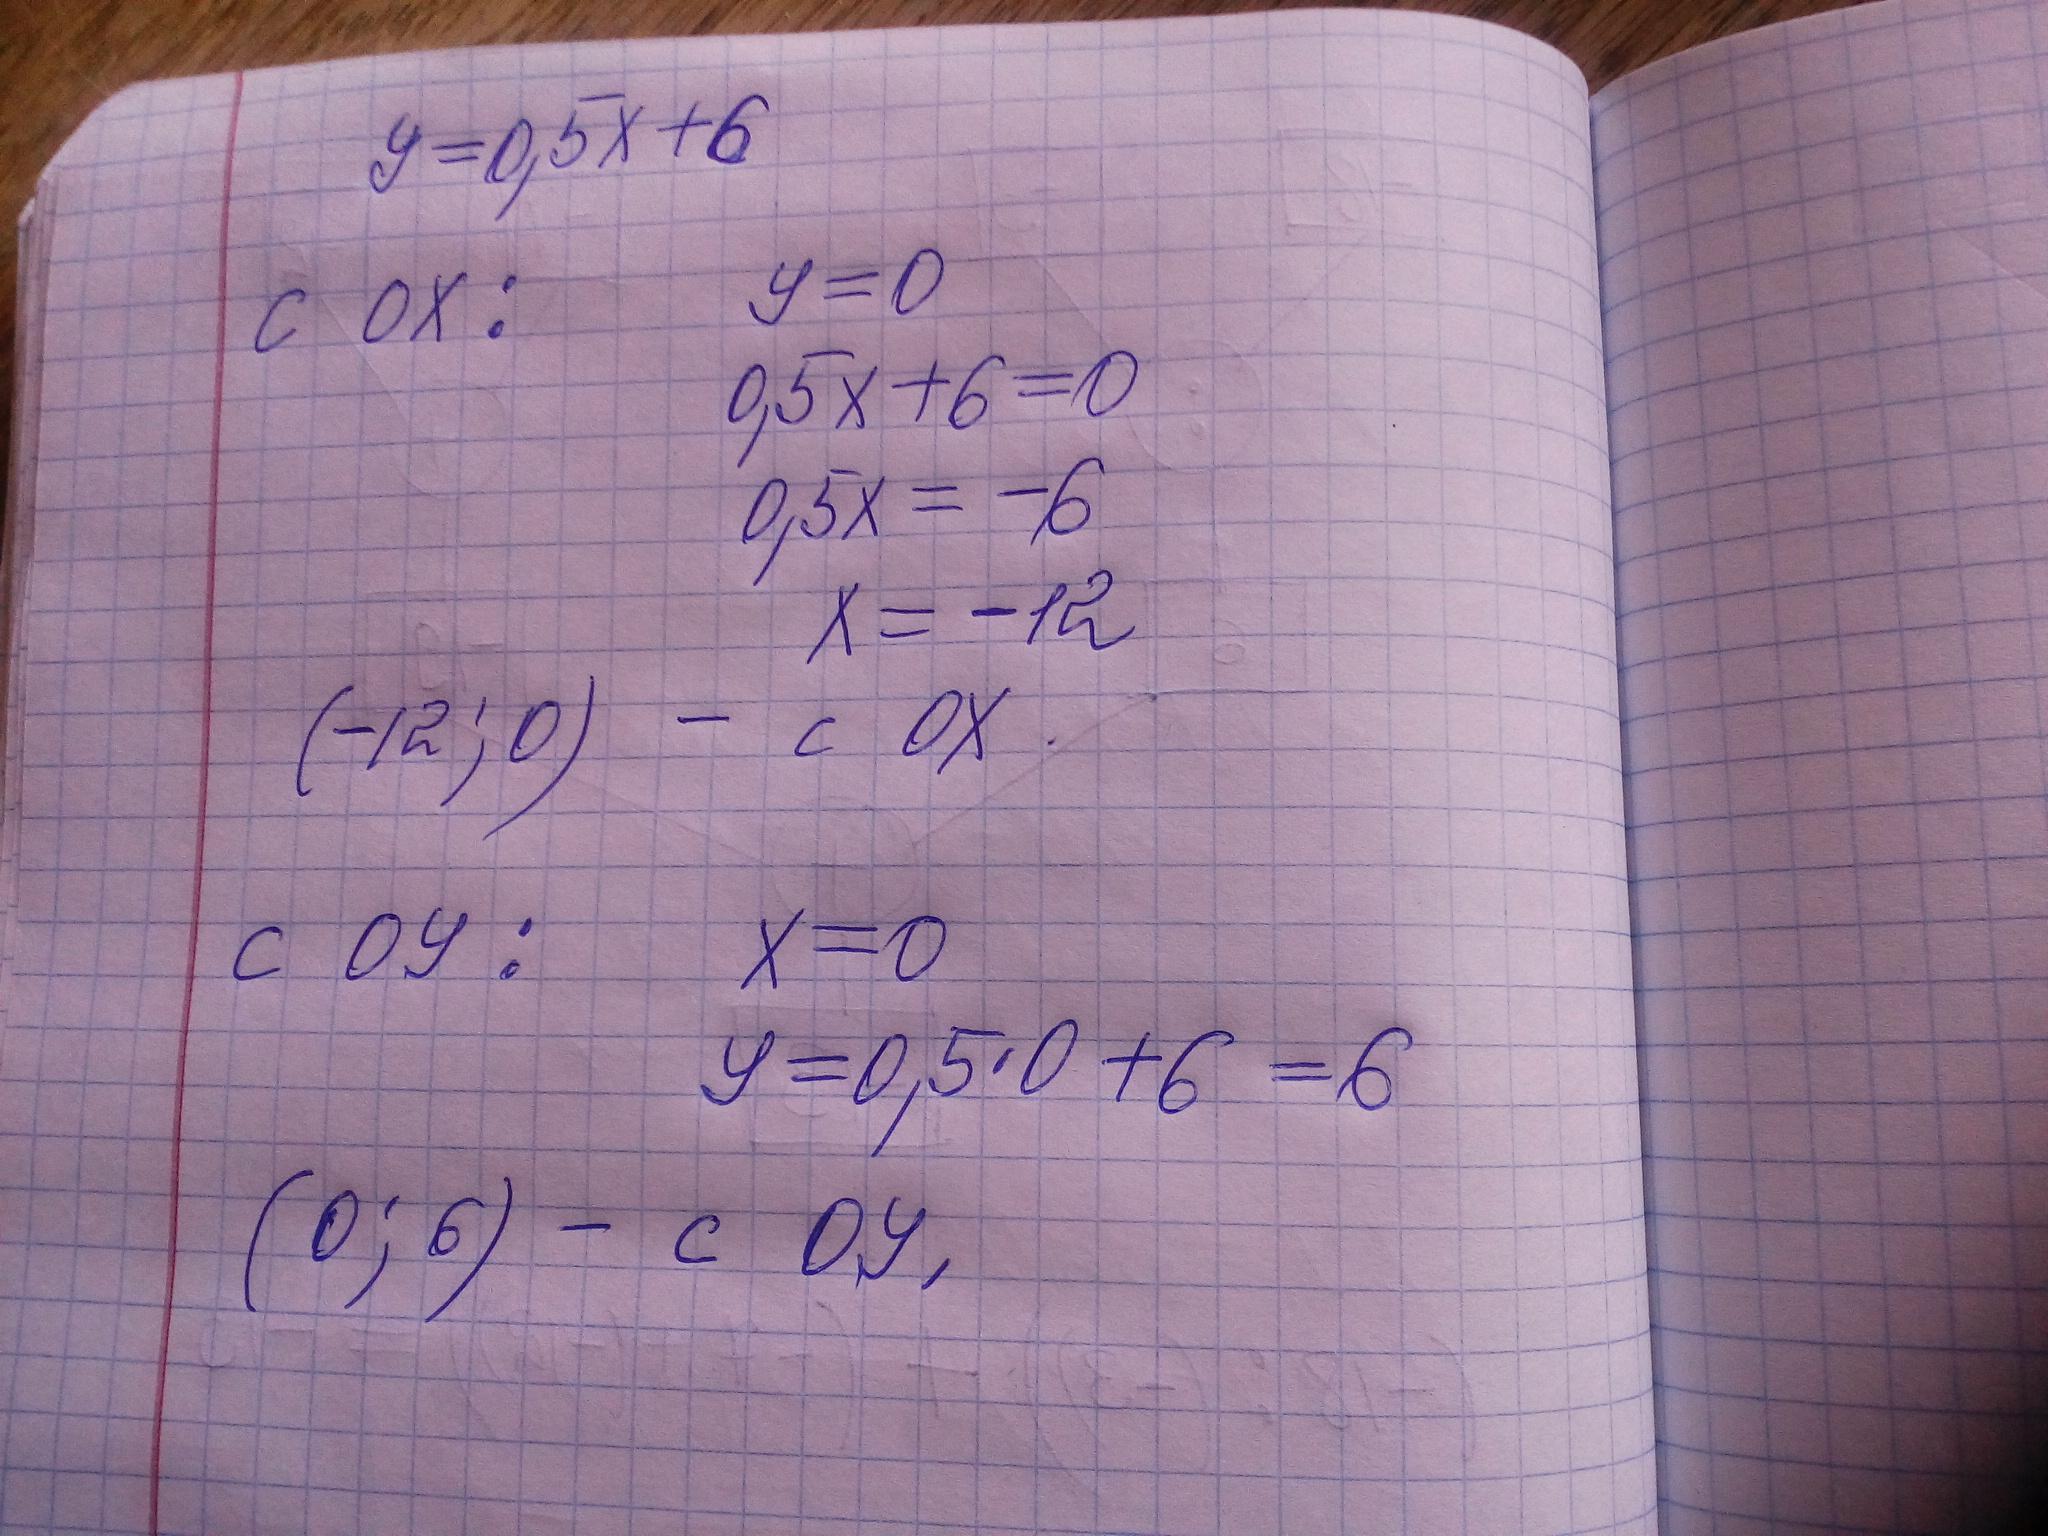 y=0,5x+6
с OX: y=0
0,5x+6=0
0,5x=-6
x=-12
(-12; 0) - с OX.
с OY: x=0
y=0,5·0+6=6
(0; 6) - с OY,